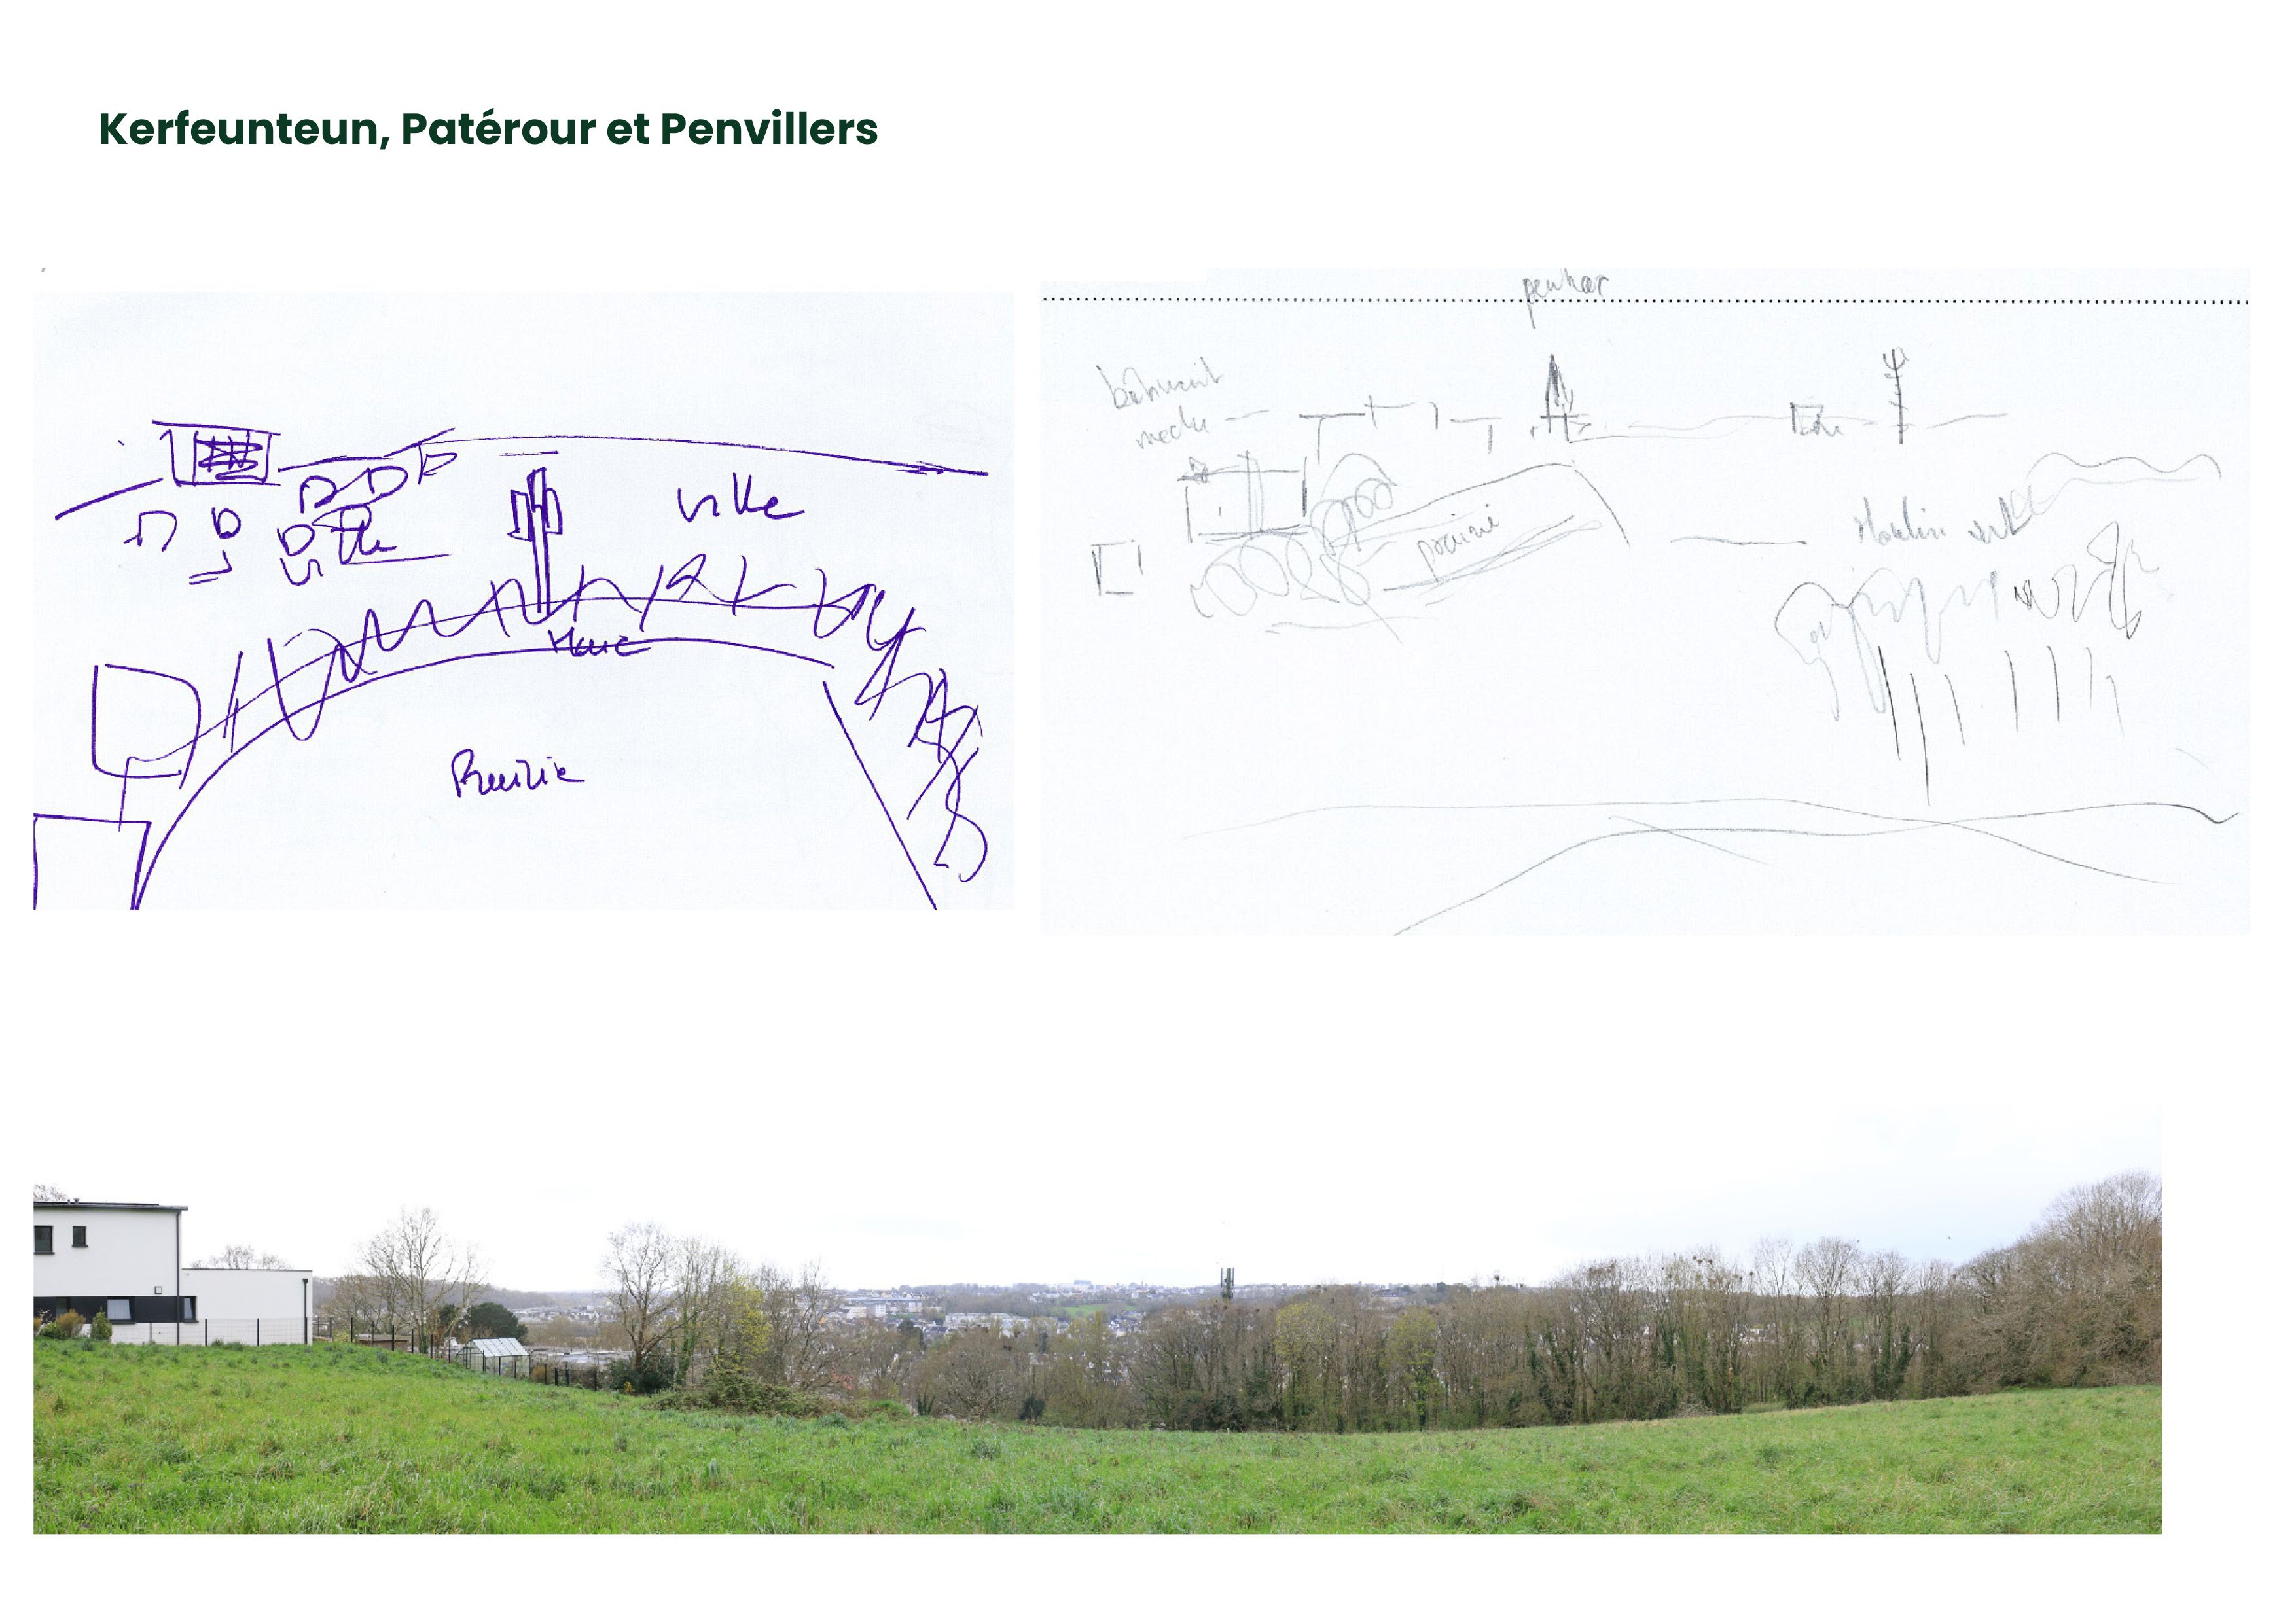 Kerfeunteun, Patérour et Penvillers
ville
ville
Haie
Prairie
penhar
bâtiment
prairie
Moulin vert